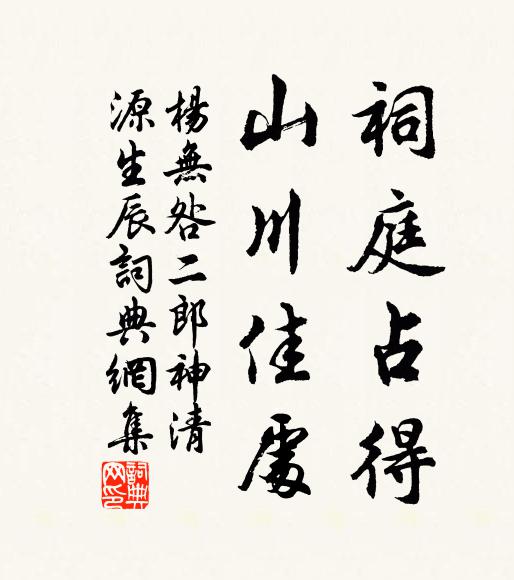 祠庭占得
山川佳處
楊無咎二郎神清
源生辰詞典網集
詞典
网印